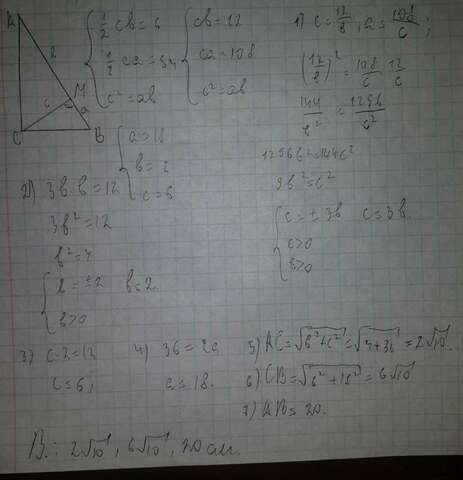 A
2
c
M
a
C
B
{ 1/2 cb = 6
1/2 ca = 54
c² = ab
{ cb = 12
ca = 108
c² = ab
{ a = 18
b = 2
c = 6
1) c = 12/b, a = 108/c;
(12/b)² = 108/c · 12/c
144/b² = 1296/c²
1296b² = 144c²
9b² = c²
{ c = ±3b c = 3b.
c>0
b>0
2) 3b·b = 12
3b² = 12
b² = 4
{ b = ±2 b = 2.
b>0
3) c·2 = 12
c = 6;
4) 36 = 2a
a = 18.
5) AC = √(b²+c²) = √(4+36) = 2√10
6) CB = √(6²+18²) = 6√10
7) AB = 20.
В.: 2√10, 6√10, 20 см.